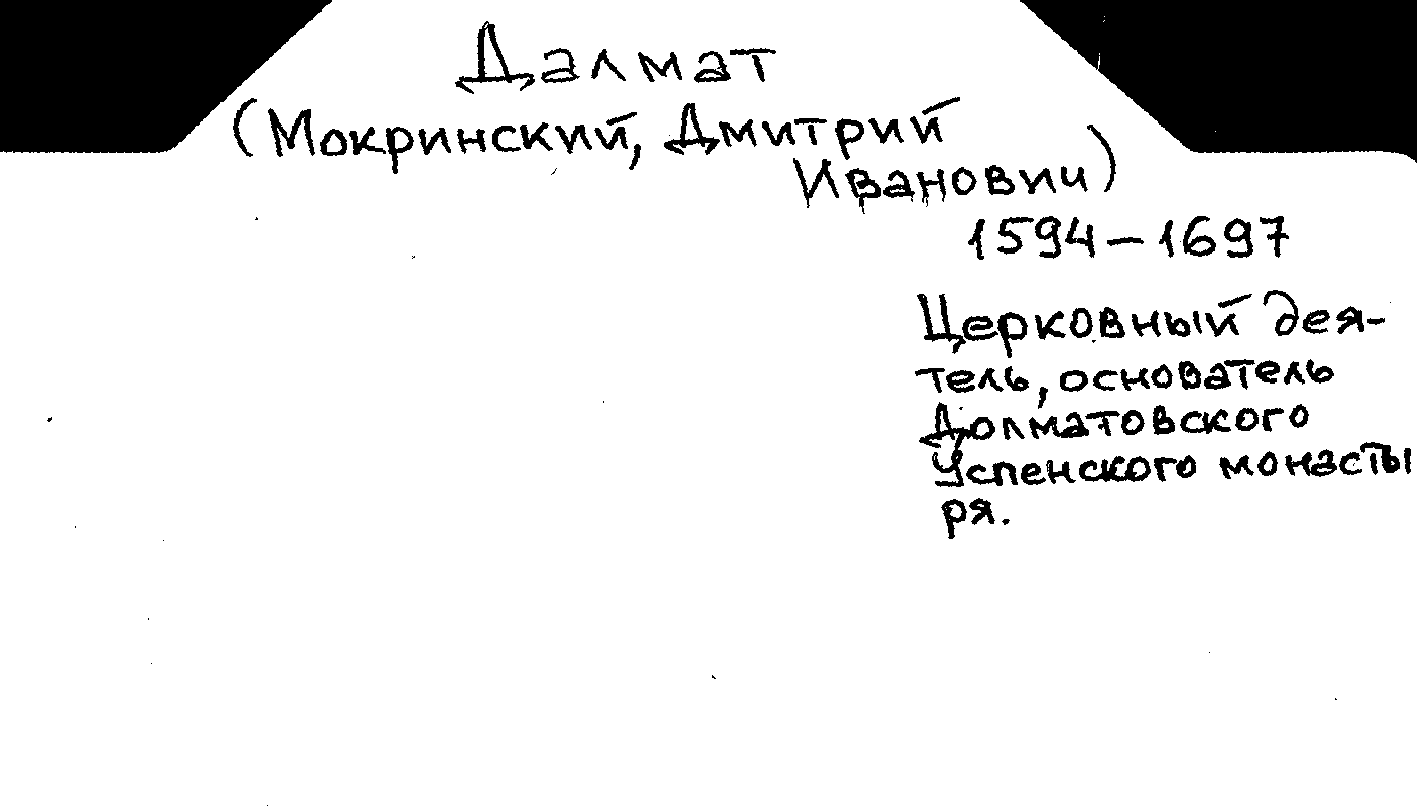 Далмат
(Мокринский, Дмитрий
Иванович)
1594–1697
Церковный дея-
тель, основатель
Долматовского
Успенского монасты
ря.